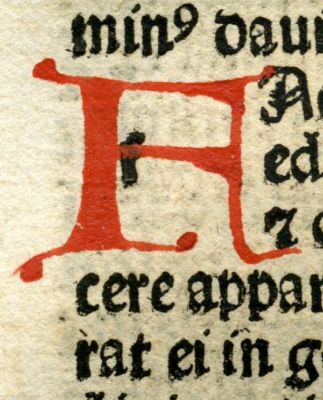 minꝰ dau
A A
ed
⁊ c
cere appar
rat ei in g